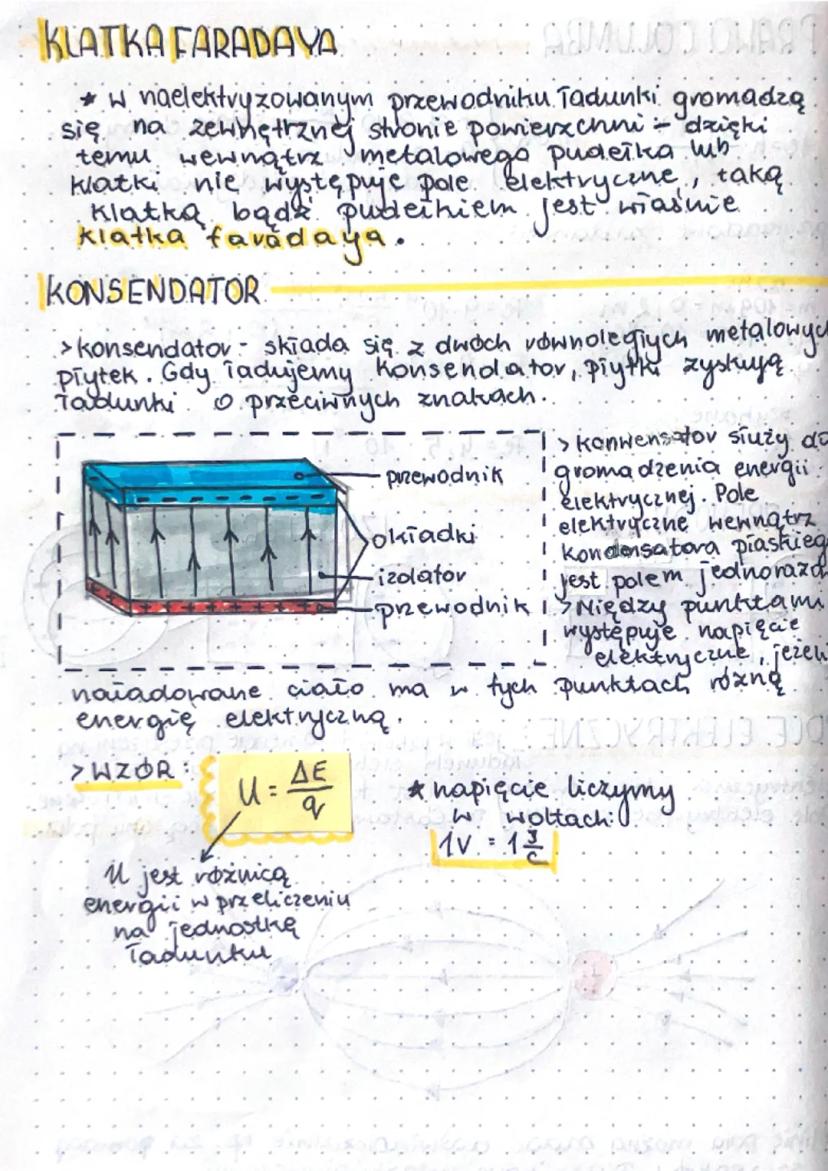 KLATKA FARADAYA
* w naelektryzowanym przewodniku ładunki gromadzą
się na zewnętrznej stronie powierzchni - dzięki
temu wewnątrz metalowego pudełka lub
klatki nie występuje pole elektryczne, taką
klatką bądź pudełkiem jest właśnie
klatka faradaya.
KONSENDATOR
> konsendator - składa się z dwóch równoległych metalowyc
płytek. Gdy ładujemy konsendator, płytki zyskują
ładunki o przeciwnych znakach.
przewodnik
okładki
izolator
przewodnik
> konwensator służy do
gromadzenia energii
elektrycznej. Pole
elektryczne wewnątrz
kondensatora płaskieg
jest polem jednoroda
> Między punktami
występuje napięcie
elektryczne, jeżeli
naładowane ciało ma w tych punktach różną
energię elektryczną.
> WZÓR:
U = ΔE/q
* napięcie liczymy
w woltach:
1V = 1 J/C
U jest różnicą
energii w przeliczeniu
na jednostkę
ładunku